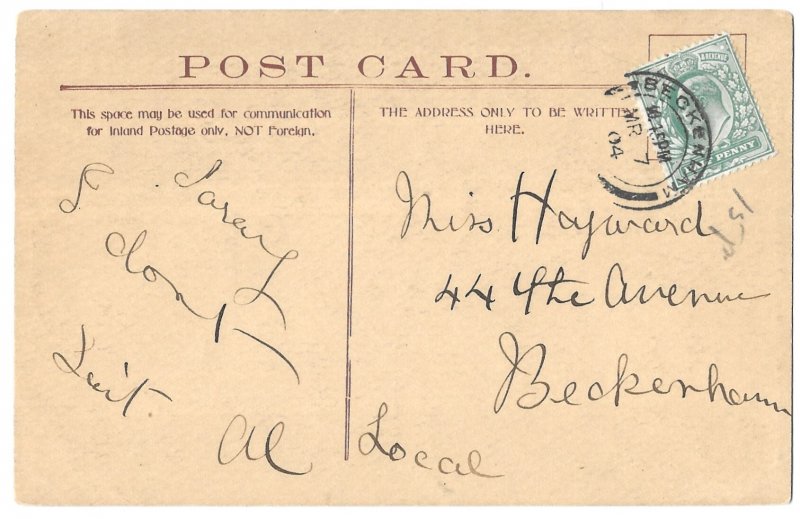 POST CARD.
This space may be used for communication
for Inland Postage only, NOT Foreign.
THE ADDRESS ONLY TO BE WRITTEN
HERE.
& REVENUE
PENNY
BECKENHAM
7.15PM
MR 7
04
Miss Hayward
44 The Avenue
Beckenham
Local
I
don't